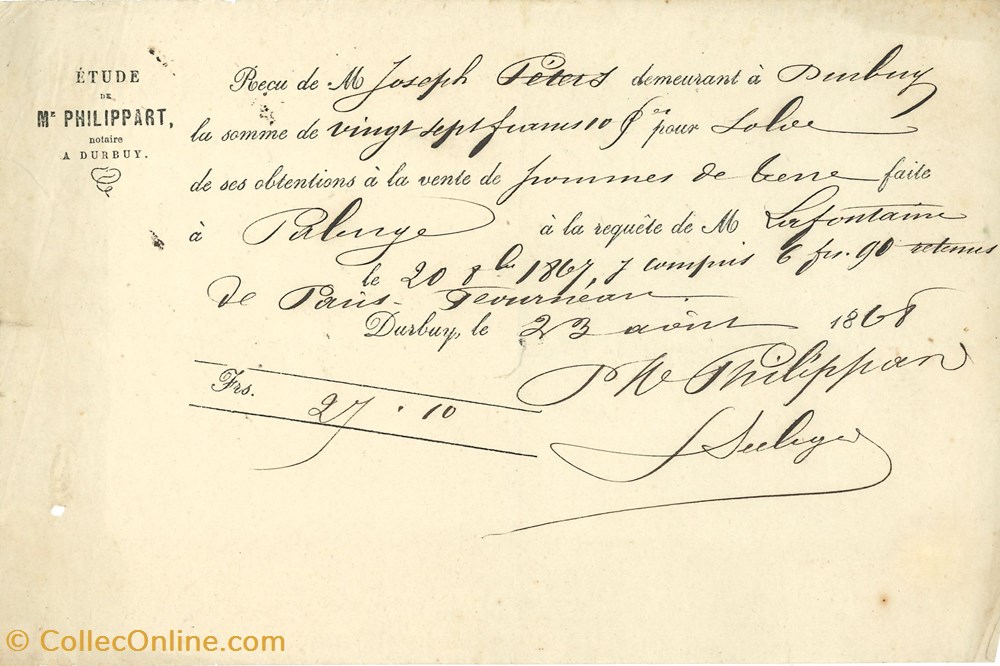 ÉTUDE
DE
Mᴱ PHILIPPART,
notaire
A DURBUY.
Reçu de M Joseph Péters demeurant à Durbuy
la somme de vingt sept francs 10 pour Solde
de ses obtentions à la vente de pommes de terre faite
à Palenge à la requête de M Lafontaine
le 20 8bre 1867, y compris 6 frs. 90 retenus
de
Durbuy, le 23 août 1868
Frs. 27 . 10
Philippart
© CollecOnline.com